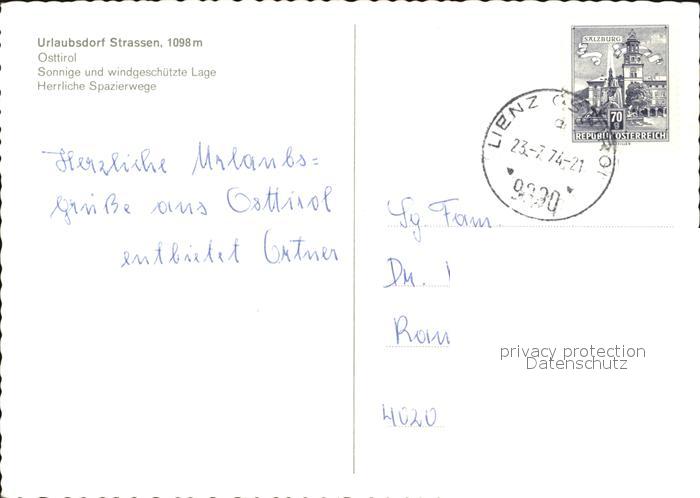 Urlaubsdorf Strassen, 1098 m
Osttirol
Sonnige und windgeschützte Lage
Herrliche Spazierwege
Herzliche Urlaubs=
grüße aus Osttirol
entbietet Ortner
SALZBURG
70
REPUBLIK ÖSTERREICH
LIENZ
23.-7.74-21
9990
Fam.
Dr.
4020
privacy protection
Datenschutz